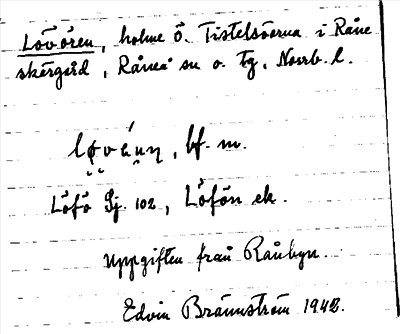 Lövören, holme ö. Tistelsöarna i Råne
skärgård, Råneå sn o. tg, Norrb. l.
bf. m.
Löfö Gj. 102, Löfön ek.
Uppgiften från Rånbyn.
Edvin Brännström 1942.